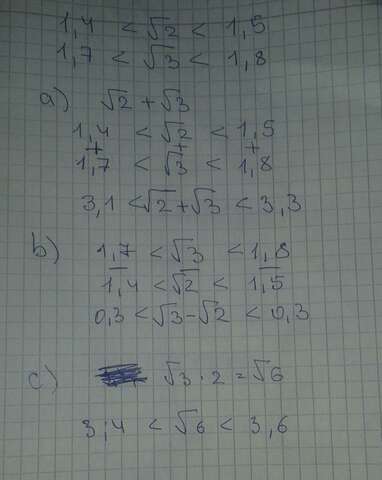 1,4 < √2 < 1,5
1,7 < √3 < 1,8
a) √2 + √3
1,4 < √2 < 1,5
+ + +
1,7 < √3 < 1,8
3,1 < √2+√3 < 3,3
b) 1,7 < √3 < 1,8
— —
1,4 < √2 < 1,5
0,3 < √3-√2 < 0,3
c) √3 · 2 = √6
3,4 < √6 < 3,6